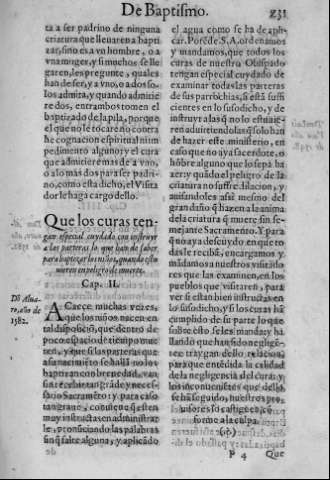 De Baptismo. 231
ta a ser padrino de ninguna
criatura que lleuaren a bapti
zar, sino es a vn hombre, o a
vna muger, y si muchos se lle
garen, les pregunte, quales
han de ser, y a vno, o a dos so-
los admita, y quando admitie
re dos, entrambos tomen el
baptizado de la pila, porque
el que no le tocare no contra
he cognacion espiritual ni im
pedimento alguno: y el cura
que admitiere mas de a vno,
o a lo mas dos para ser padri-
no, como esta dicho, el Visita
dor le haga cargo dello.
Que los curas ten-
gan especial cuydado con instruyr
a las parteras lo que han de saber
para baptizar los niños, quando estu
uieren en peligro de muerte.
Cap. II.
Dō Alua-
ro, año de
1582.
ACaece muchas vezes,
que los niños nacen en
tal disposició, que dentro de
poco espacio de tiempo mue
ren, y que si las parteras que
a su nacimiēto se hallā no los
baptizan con breuedad, van
sin recebir tan grāde y neces-
sario Sacramēto: y para caso
tan graue, conuiene q̄ esten
muy instructas en administrar
le, pronūciando las palabras
sin q̄ falte alguna, y aplicādo
el agua como se ha de apli-
car. Por ēde S. S. A. ordenamos
y mandamos, que todos los
curas de nuestro Obispado
tengan especial cuydado de
examinar todas las parteras
de sus parrochias, si estā suffi
cientes en lo susodicho, y de
instruyr a las q̄ no lo estuuie
ren aduirtiendolas q̄ solo han
de hazer este ministerio, en
caso que no aya sacerdote, o
hōbre alguno que lo sepa ha
zer: y quādo el peligro de la
criatura no suffre dilacion, y
auisandoles assi mesmo del
grande daño q̄ hazen a la anima
dela criatura q̄ muere sin se-
mejante Sacramento. Y para
q̄ no aya descuydo en que to
das le reciban, encargamos y
mādamos a nuestros visitado
res que las examinen, en los
pueblos que visitaren, para
ver si estan bien instructas en
lo susodicho, y si los curas hā
cumplido de su parte lo que
sobre esto se les manda: y ha
llando que han sido neglige-
tes: traygan dello relacion,
para que entendida la calidad
dela negligencia del cura: y
los incouenientes que dello
se ha seguido, nuestros pro-
uisores lo castiguen, con-
forme a la culpa.
(?)
P 4 Que